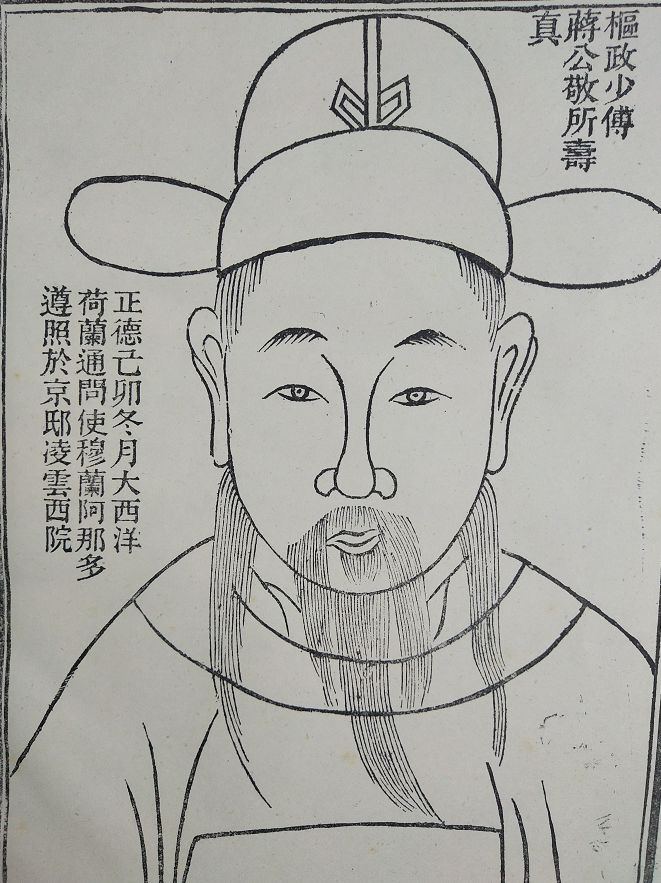 樞政少傅
蔣公敬所壽
真
正德己卯冬月大西洋
荷蘭通問使穆蘭阿那多
遵照於京邸凌雲西院